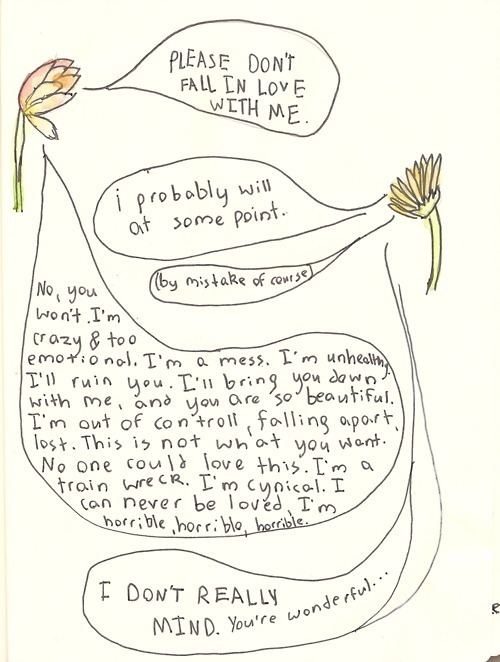 PLEASE DON'T
FALL IN LOVE
WITH ME.
i probably will
at some point.
(by mistake of course)
No, you
won't. I'm
crazy & too
emotional. I'm a mess. I'm unhealthy.
I'll ruin you. I'll bring you down
with me, and you are so beautiful.
I'm out of controll, falling apart,
lost. This is not what you want.
No one could love this. I'm a
train wreck. I'm cynical. I
can never be loved, I'm
horrible, horrible, horrible.
I DON'T REALLY
MIND. You're wonderful...